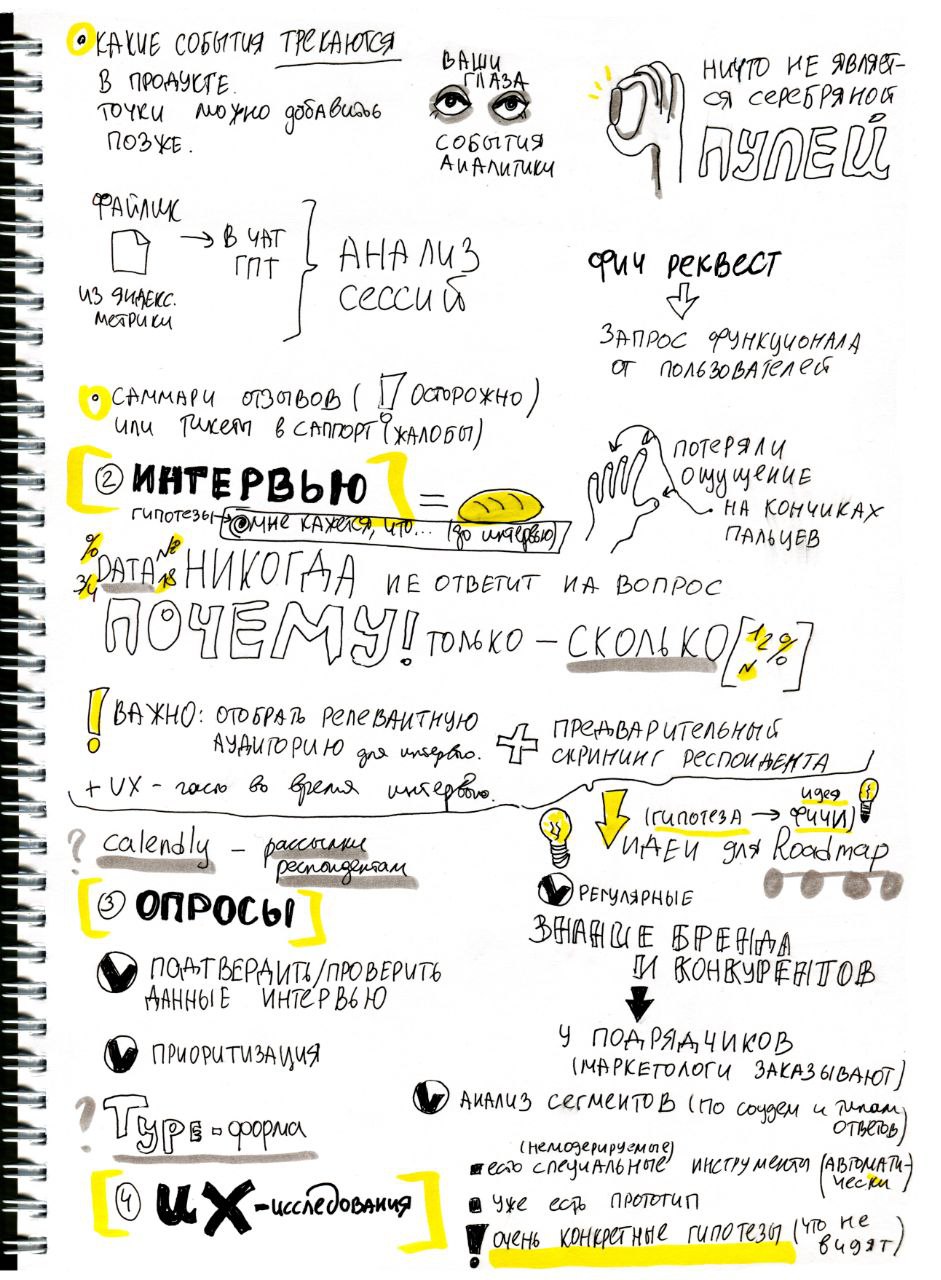 КАКИЕ СОБЫТИЯ ТРЕКАЮТСЯ
В ПРОДУКТЕ.
ТОЧКИ МОЖНО добавить
ПОЗЖЕ.
ВАШИ
ГЛАЗА
СОБЫТИЯ
АНАЛИТИКИ
НИЧТО НЕ ЯВЛЯЕТ-
СЯ СЕРЕБРЯНОЙ
ПУЛЕЙ
ФАЙЛИК
ИЗ ЯНДЕКС.
МЕТРИКИ
→ В ЧАТ
ГПТ
АНАЛИЗ
СЕССИЙ
ФИЧ РЕКВЕСТ
ЗАПРОС ФУНКЦИОНАЛА
ОТ ПОЛЬЗОВАТЕЛЕЙ
САММАРИ ОТЗЫВОВ (! ОСТОРОЖНО)
ИЛИ Тикеты в САППОРТ (ЖАЛОБЫ)
② ИНТЕРВЬЮ =
ГИПОТЕЗЫ → мне кажется, что... (до интервью)
ПОТЕРЯЛИ
ОЩУЩЕНИЕ
НА КОНЧИКАХ
ПАЛЬЦЕВ
% № 3/4 18
DATA НИКОГДА НЕ ОТВЕТИТ НА ВОПРОС
ПОЧЕМУ! ТОЛЬКО – СКОЛЬКО [1/2 % N]
! ВАЖНО: ОТОБРАТЬ РЕЛЕВАНТНУЮ
АУДИТОРИЮ для интервью.
+ ПРЕДВАРИТЕЛЬНЫЙ
СКРИНИНГ РЕСПОНДЕНТА
+ UX - часть во время интервью.
(ГИПОТЕЗА → идея ФИЧИ)
ИДЕИ для Roadmap
? Calendly – рассылки
респондентам
③ ОПРОСЫ
ПОДТВЕРДИТЬ/ПРОВЕРИТЬ
ДАННЫЕ ИНТЕРВЬЮ
ПРИОРИТИЗАЦИЯ
РЕГУЛЯРНЫЕ
ЗНАНИЕ БРЕНДА
И КОНКУРЕНТОВ
У ПОДРЯДЧИКОВ
(МАРКЕТОЛОГИ ЗАКАЗЫВАЮТ)
АНАЛИЗ СЕГМЕНТОВ (ПО соцдем и типам
ОТВЕТОВ)
? Type-форма
④ UX-исследования
(немодерируемые)
есть специальные инструменты (АВТОМАТИ-
чески)
Уже есть прототип
! очень КОНКРЕТНЫЕ ГИПОТЕЗЫ (что не
видят)